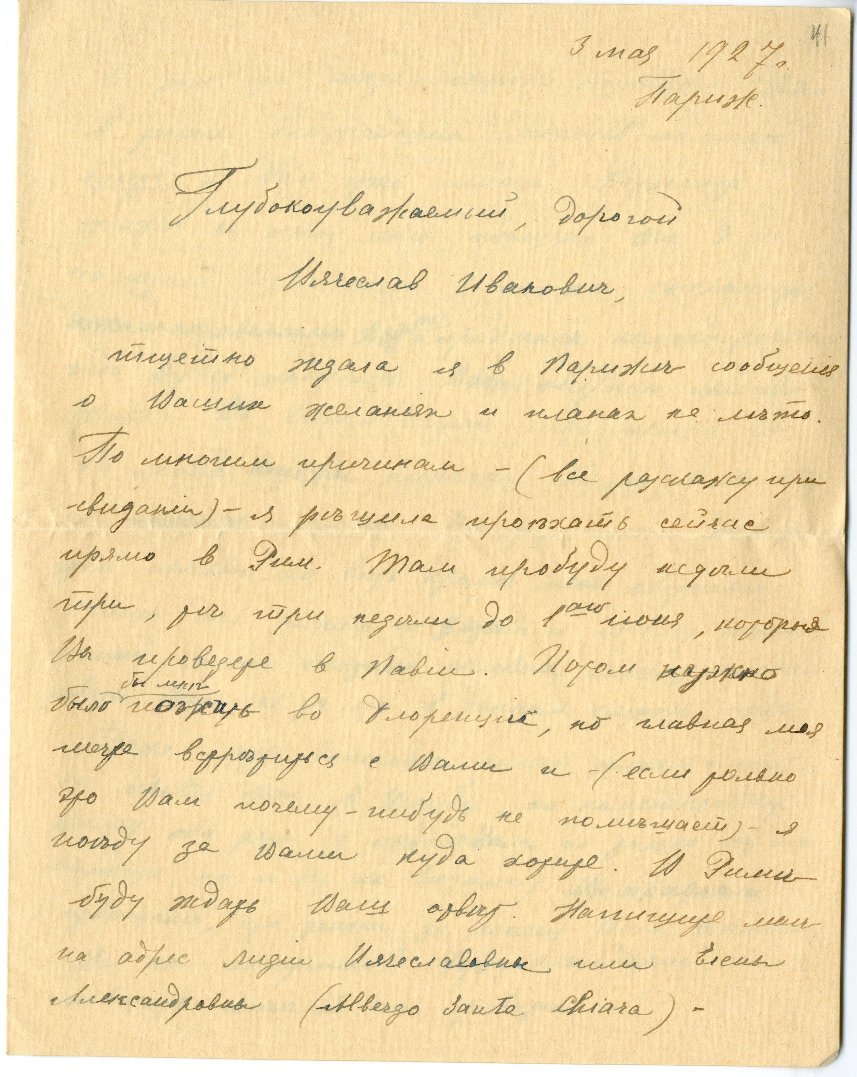 41
3 мая 1927 г.
Париж.
Глубокоуважаемый, дорогой
Вячеслав Иванович,
тщетно ждала я в Парижѣ сообщенія
о Вашихъ желаніях и планах на лѣто.
По многим причинам – (все разскажу при
свиданіи) – я рѣшила проѣхать сейчас
прямо в Рим. Там пробуду недѣли
три, тѣ три недѣли до 1ого июня, которыя
Вы проведете в Павіи. Потом нужно
было бы мнѣ пожить во Флоренціи, но главная моя
мечта встрѣтиться с Вами и – (если только
это Вам почему-нибудь не помѣшает) – я
поѣду за Вами куда хотите. В Римѣ
буду ждать Ваш отвѣт. Напишите мнѣ
на адрес Лидіи Вячеславовны или Елены
Александровны (Albergo Santa Chiara) –